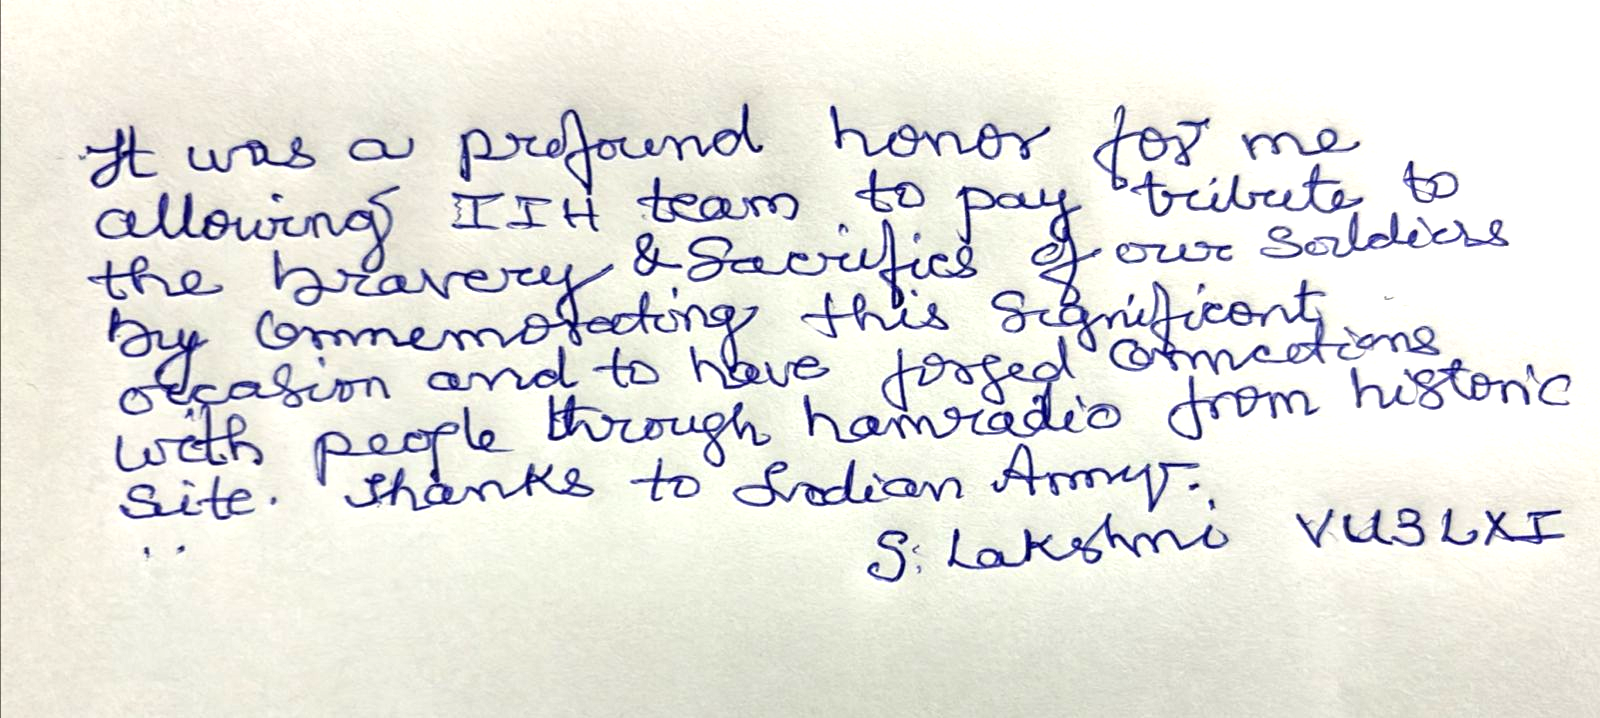 It was a profound honor for me
allowing IIH team to pay tribute to
the bravery & Sacrifies of our Soldiers
by Commemorating this Significant
occasion and to have forged Connections
with people through hamradio from historic
Site. Thanks to Indian Army.
S. Lakshmi VU3LXI